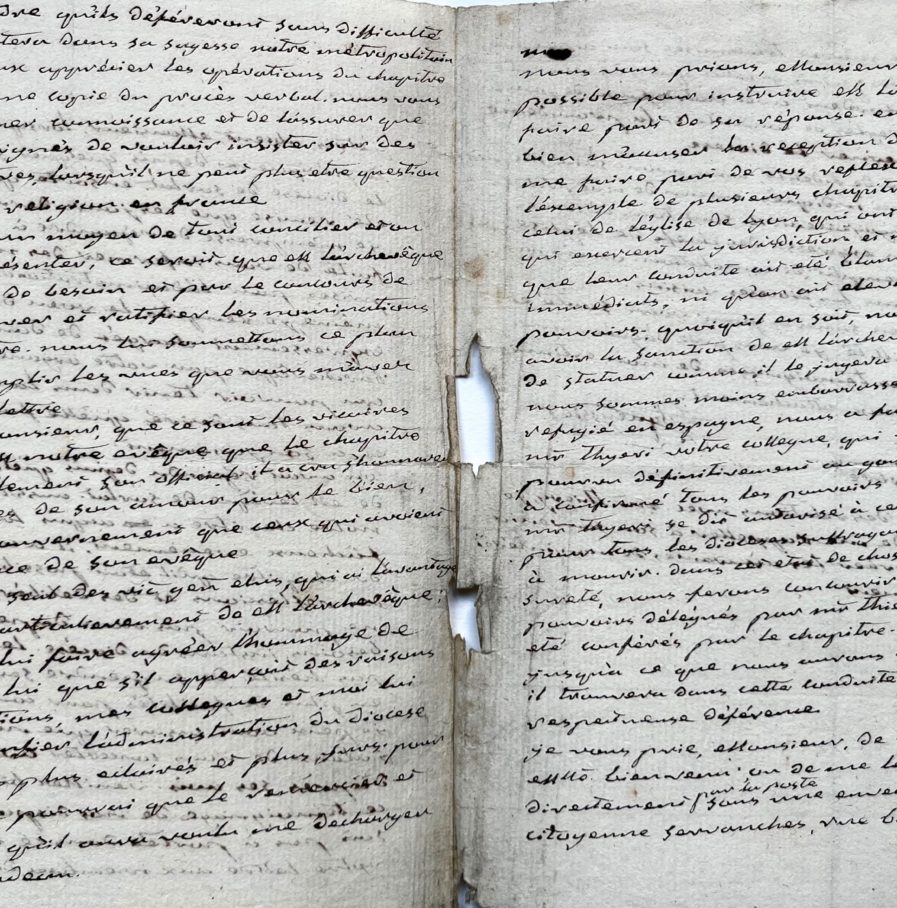 dre qu'ils défèreront sans difficulté
tera dans sa sagesse notre métropolitain
ux apprécier les opérations du chapitre
ne copie du procès verbal. nous vous
ner connoissance et de l'assurer que
ignés de vouloir insister sur des
res, lorsqu'il ne peut plus etre question
religion en france
un moyen de tout concilier et ou
ésenter, ce seroit que M l'archevêque
de besoin et par le concours de
ver et ratifier les nominations
re. nous lui soumettons ce plan
mplir les vues que vous m'avez
lettre
onsieur, que ce sont les vicaires
M notre evêque que le chapitre
lement son official. il a cru s'honorer
es de son amour pour le bien,
ouvernement que ceux qui avoient
ce de son evêque
seul des vic. gen. elus, qui ai l'avantage
articulierement de M l'archevêque;
lui faire agréer l'hommage de
lui que s'il apperçoit des raisons
tions, mes collegues et moi lui
nfier l'administration du diocese
plus eclairés et plus surs. pour
pourrai que le remercier et
qu'il aura voulu me decharger
deau.
nous vous prions, Monsieur
possible pour instruire M l'a
faire part de sa réponse. en
bien m'accuser la reception d
me faire part de vos reflex
l'exemple de plusieurs chapitr
celui de l'église de Lyon, qui ont
qui exercent la jurisdiction et
que leur conduite ait été blam
immédiats, ni qu'on ait eleve
pouvoirs. quoiqu'il en soit, no
avoir la sanction de M l'archev
de statuer comme il le jugera
nous sommes moins embarrassé
refugié en espagne, nous a fa
mr thyeri votre collegue, qui
pourvu définitivement au gou
a confirmé tous les pouvoirs
mr thyeri se dit autorisé à ce
pour tous les dioceses suffragan
à mourir. dans cet etat de chos
sureté, nous ferons concourir
pouvoirs délégués par mr thie
été conférés par le chapitre.
jusqu'à ce que nous aurons
il trouvera dans cette conduite
respectueuse déférence.
je vous prie, Monsieur, de
bienvenu ou de me la
directement par la poste sous une enve
citoyenne servanches, rue b